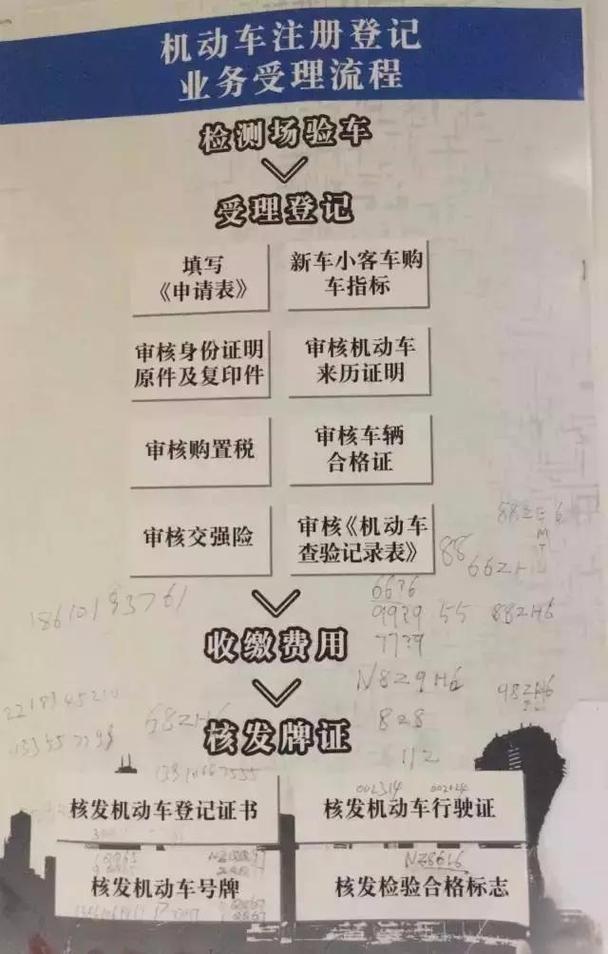 机动车注册登记
业务受理流程
检测场验车
受理登记
填写
《申请表》
新车小客车购
车指标
审核身份证明
原件及复印件
审核机动车
来历证明
审核购置税
审核车辆
合格证
审核交强险
审核《机动车
查验记录表》
88
18610193761
55
882H6
收缴费用
N829H6
982H6
682H6
828
核发牌证
112
002314
核发机动车登记证书
核发机动车行驶证
核发机动车号牌
核发检验合格标志